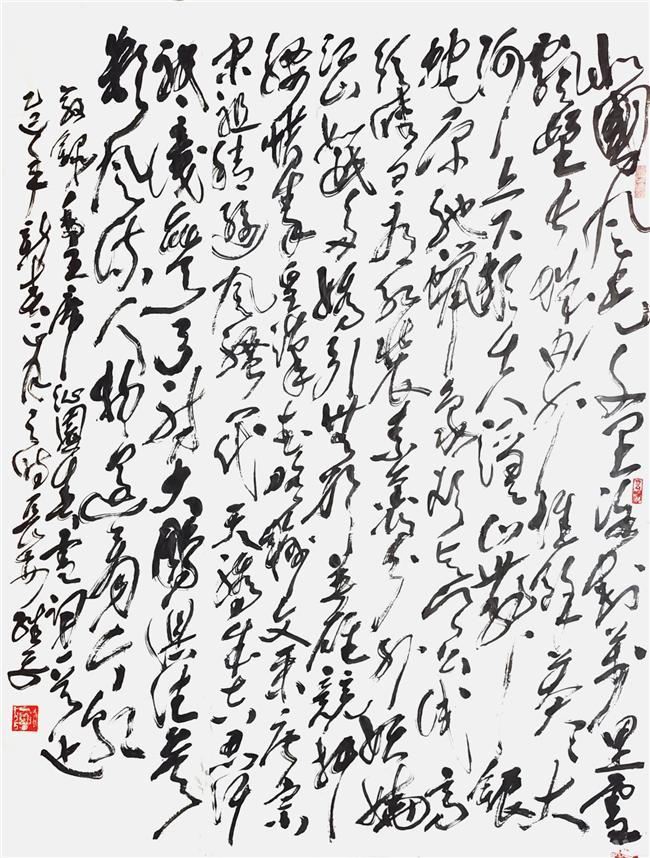 北國風光千里冰封萬里雪
飄望長城内外惟餘莽々大
河上下頓失滔々山舞銀
蛇原馳蠟象欲與天公試高
須晴日看紅裝素裹分外妖嬈
江山如此多嬌引無數英雄競折
腰惜秦皇漢武略輸文采唐宗
宋祖稍遜風騷一代天驕成吉思汗
祇識彎弓射大鵰俱往矣
數風流人物還看今朝
敬錄毛主席沁園春雪詞一首也
乙巳年新春正月之時